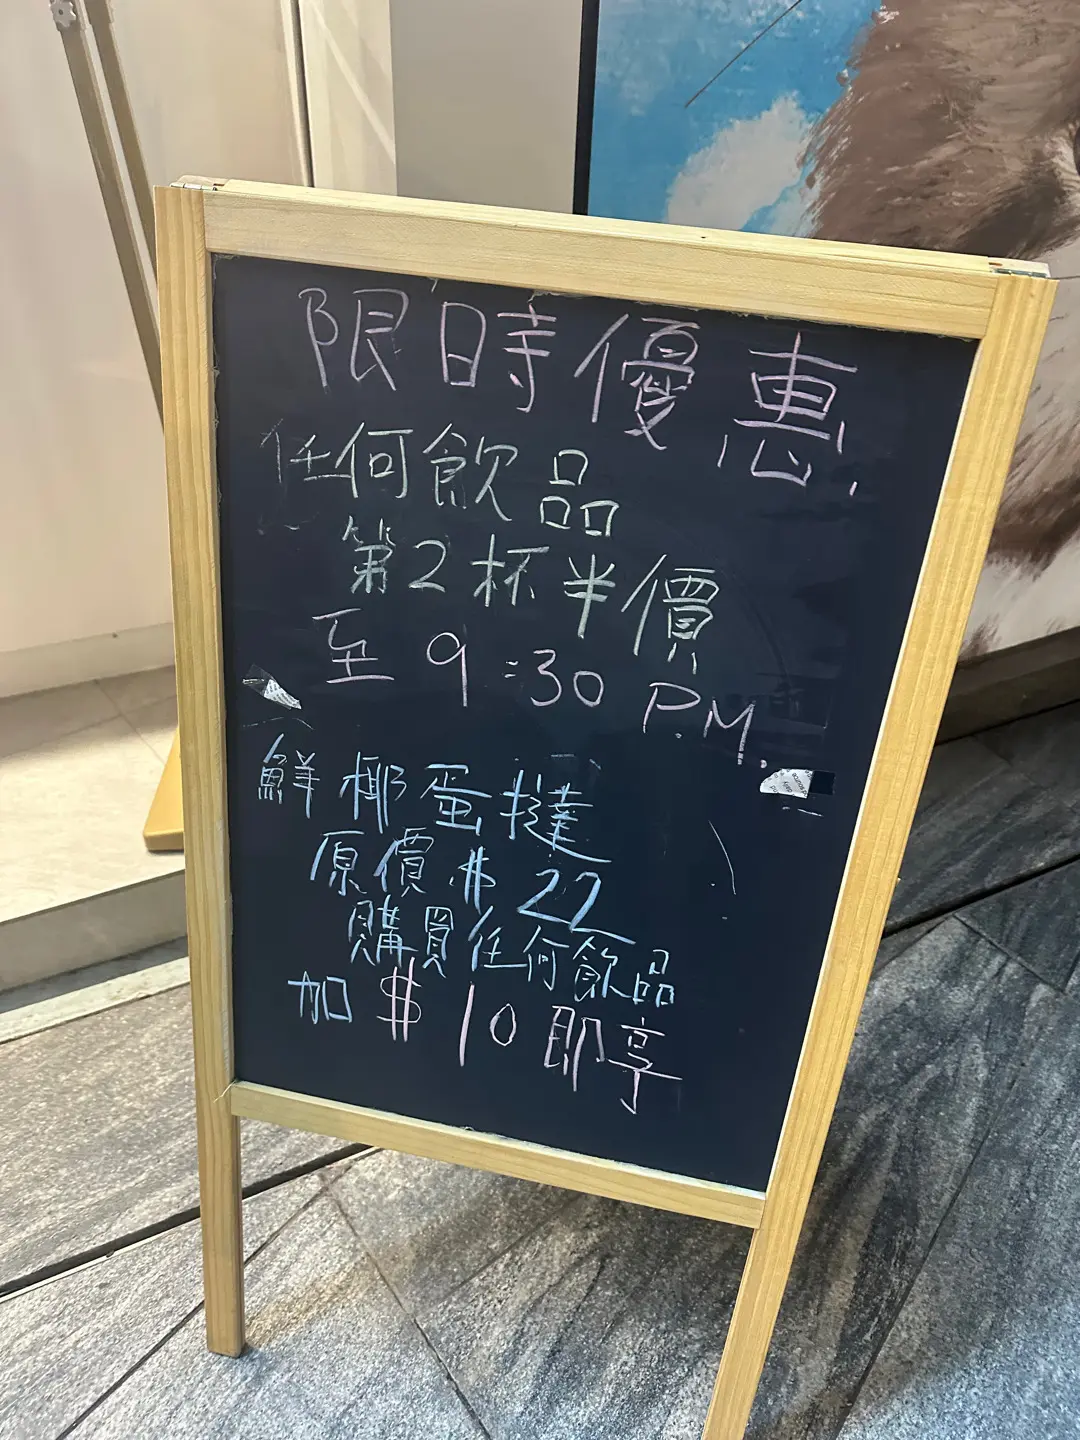 限時優惠
任何飲品
第2杯半價
至 9:30 P.M.
鮮椰蛋撻
原價 $22
購買任何飲品
加 $10 即享